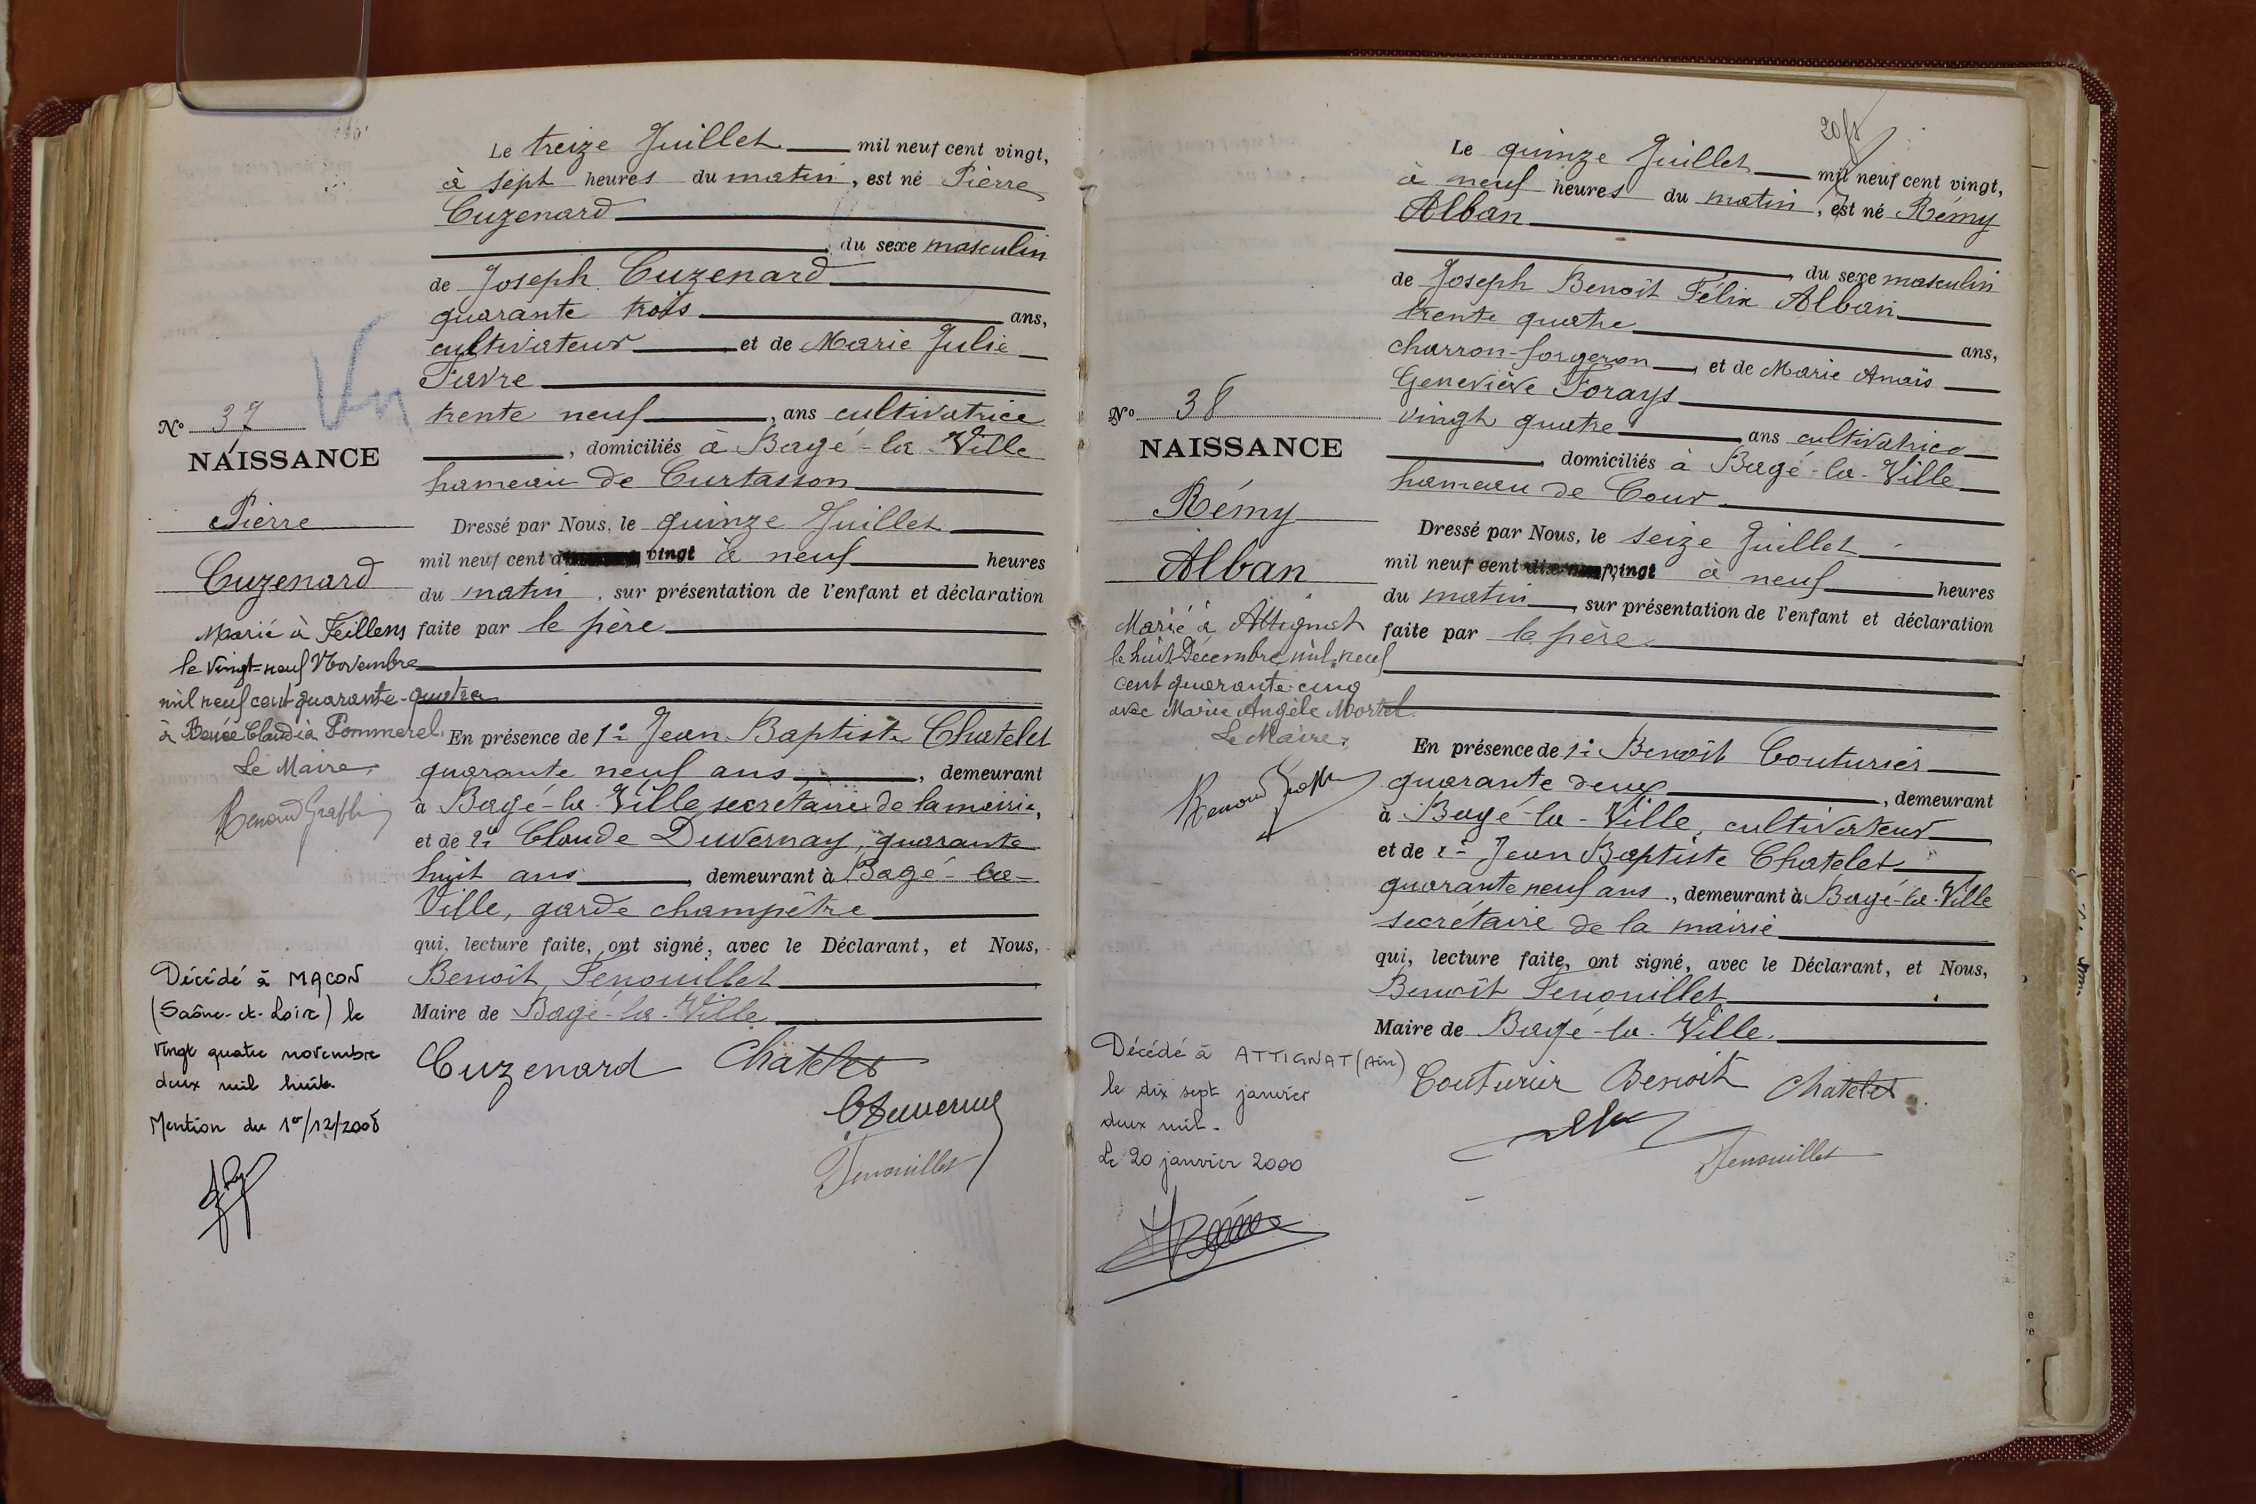 Le treize Juillet mil neuf cent vingt,
à sept heures du matin, est né Pierre
Cuzenard
du sexe masculin
de Joseph Cuzenard
quarante trois ans,
cultivateur et de Marie Julie
Favre
trente neuf, ans cultivatrice
, domiciliés à Bagé-la-Ville
hameau de Curtasson
Dressé par Nous, le quinze Juillet
mil neuf cent vingt à neuf heures
du matin, sur présentation de l'enfant et déclaration
faite par le père
En présence de 1° Jean Baptiste Chatelet
quarante neuf ans, demeurant
à Bagé-la-Ville secrétaire de la mairie,
et de 2° Claude Duvernay, quarante
huit ans, demeurant à Bagé-la-
Ville, garde champêtre
qui, lecture faite, ont signé, avec le Déclarant, et Nous,
Benoît Penouillet
Maire de Bagé-la-Ville
Cuzenard Chatelet
C Duvernay
Penouillet
N° 37
NAISSANCE
Pierre
Cuzenard
Marié à Feillens
le vingt-neuf Novembre
mil neuf cent quarante-quatre
à Renée Claudia Pommerel
Le Maire,
Décédé à MACON
(Saône-et-Loire) le
vingt quatre novembre
deux mil huit
Mention du 1er/12/2008
Le quinze Juillet mil neuf cent vingt,
à neuf heures du matin, est né Rémy
Alban
, du sexe masculin
de Joseph Benoît Félix Alban
trente quatre ans,
charron-forgeron, et de Marie Anaïs
Geneviève Forays
vingt quatre ans cultivatrice
, domiciliés à Bagé-la-Ville
hameau de Cour
Dressé par Nous, le seize Juillet
mil neuf cent vingt à neuf heures
du matin, sur présentation de l'enfant et déclaration
faite par le père
En présence de 1° Benoît Couturier
quarante deux, demeurant
à Bagé-la-Ville, cultivateur
et de 2° Jean Baptiste Chatelet
quarante neuf ans, demeurant à Bagé-la-Ville
secrétaire de la mairie
qui, lecture faite, ont signé, avec le Déclarant, et Nous,
Benoît Penouillet
Maire de Bagé-la-Ville.
Couturier Benoit Chatelet
Penouillet
N° 38
NAISSANCE
Rémy
Alban
Marié à Attignat
le huit Décembre mil neuf
cent quarante-cinq
avec Marie Angèle Mortel
Le Maire,
Décédé à ATTIGNAT (Ain)
le dix sept janvier
deux mil.
Le 20 janvier 2000